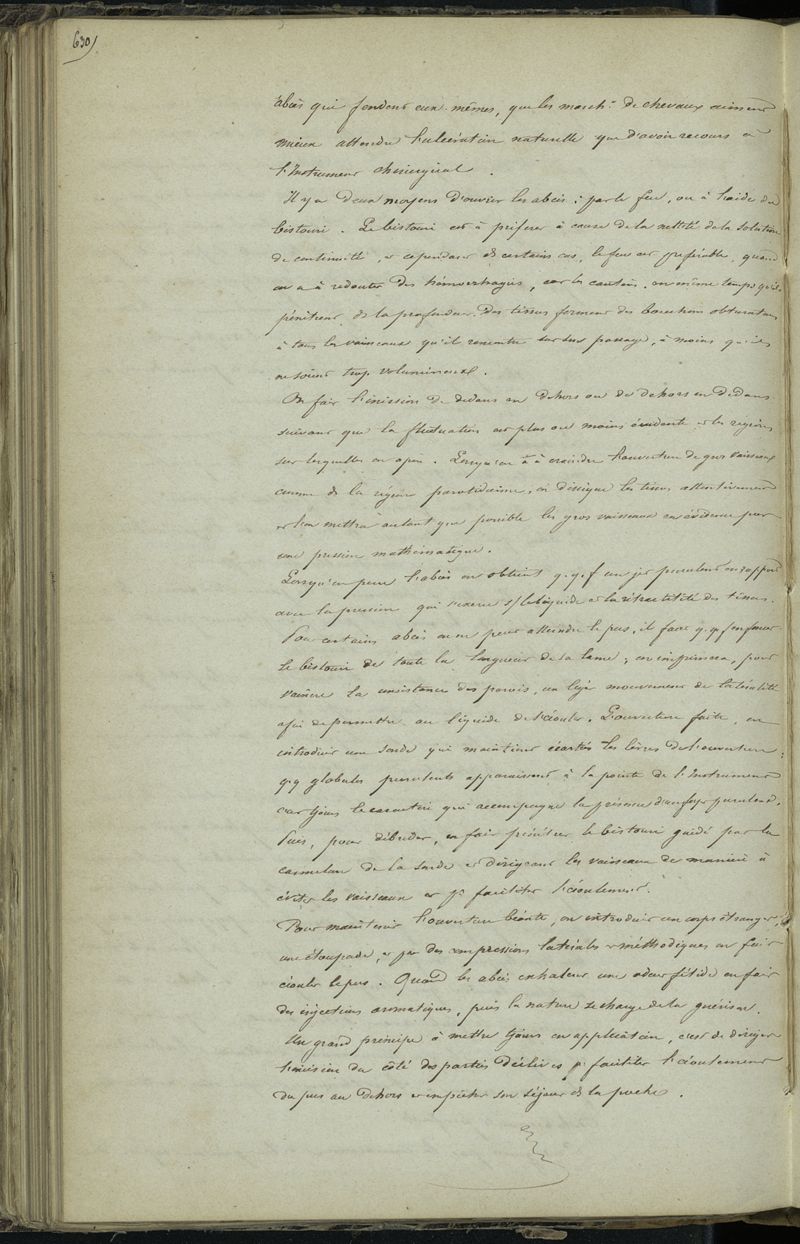 630)
abcès qui fondent eux mêmes, que les march.ds de chevaux aiment
mieux attendre l'ulcération naturelle que d'avoir recours à
l'Instrument chirurgical.
Il y a deux moyens d'ouvrir les abcès : par le feu, ou à l'aide du
bistouri. Le bistouri est à préférer à cause de la netteté de la solution
de continuité, et cependant ds certains cas, le feu est préférable, quand
on a à redouter des hémorrhagies, car les cautères, en même temps qu'ils
pénètrent ds la profondeur des tissus forment des bouchons obturateurs
à tous les vaisceaux qu'il rencontre sur son passage, à moins qu'ils
ne soient trop volumineux.
On fait l'incision de dedans en dehors ou de dehors en dedans
suivant que la fluctuation est plus ou moins évidente et les régions
sur lesquelles on opère. Lorsqu'on a à craindre l'ouverture de gros vaisseaux
comme ds la région parotidienne, on dissèque les tissus attentivement
et l'on mettra autant que possible les gros vaisseaux en évidence par
une pression mathématique.
Lorsqu'on perce l'abcès on obtient q.q.f un jet purulent en rapport
avec la pression qui s'exerce s/ le liquide et la rétractilité des tissus.
Pour certains abcès on ne peut atteindre le pus, il faut q.q.f enfoncer
le bistouri de toute la longueur de la lame; on imprimera, pour
vaincre la résistance des parois, un léger mouvement de latéralité
afin de permettre au liquide de s'écouler. L'ouverture faite, on
introduit une sonde qui maintient écartés les lèvres de l'ouverture;
q.q globules purulents apparaissent à la pointe de l'Instrument
c'est tjours le caractère qui accompagne la présence d'un foyer purulent.
Puis, pour débrider, on fait pénétrer le bistouri guidé par la
cannelure de la sonde et dirigeant les vaisseaux de manière à
éviter les vaisseaux et pr faciliter l'écoulement.
Pour maintenir l'ouverture béante, on introduit un corps étranger,
une étoupade, et par des compressions latérales et méthodiques on fait
écouler le pus. Quand les abcès exhalent une odeur fétide on fait
des injections aromatiques, puis la nature se charge de la guérison.
Un grand principe à mettre tjours en application, c'est de diriger
l'incision du côté des parties déclives pr faciliter l'écoulement
du pus au dehors et empêcher son séjour ds la poche.